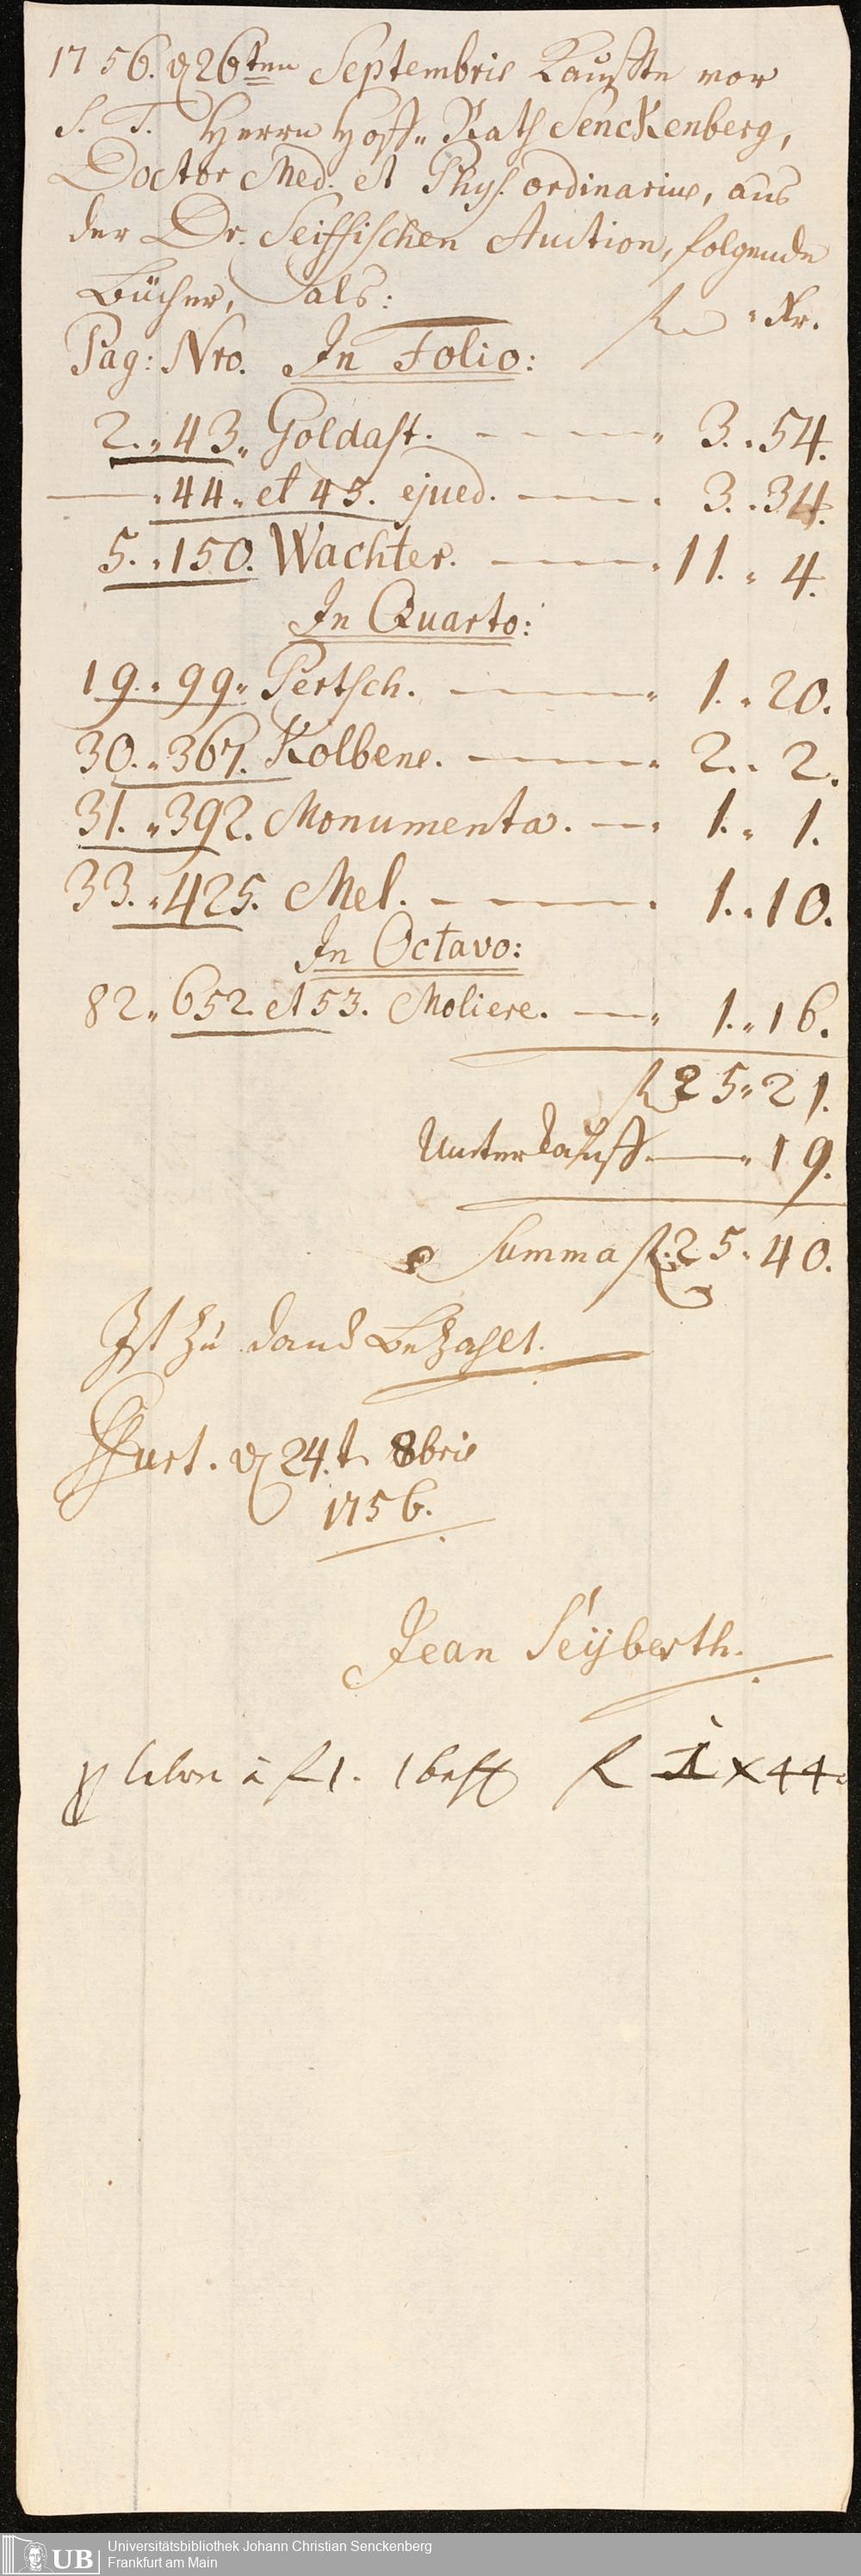 1756. d 26ten Septembris Kauffte vor
S. T. Herrn Hoff- Rath Senckenberg,
Doctor Med. et Phys. ordinarius, aus
der Dr. Seiffischen Auction, folgende
Bücher, als:
fl. Xr.
Pag: Nro. In Folio:
2. 43. Goldast. 3. 54.
— 44. et 45. ejusd. 3. 34.
5. 150. Wachter. 11. 4.
In Quarto:
19. 99. Pertsch. 1. 20.
30. 367. Kolbens. 2. 2.
31. 392. Monumenta. 1. 1.
33. 425. Mel. 1. 10.
In Octavo:
82. 652. et 53. Moliere. 1. 16.
fl 25. 21.
Unterkauff. 19.
Summa fl. 25. 40.
Ist zu danck bezahlt.
Ffurt. d 24.t 8bris
1756.
Jean Seÿberth.
à f 1. f 1 x 44.
UB
Universitätsbibliothek Johann Christian Senckenberg
Frankfurt am Main